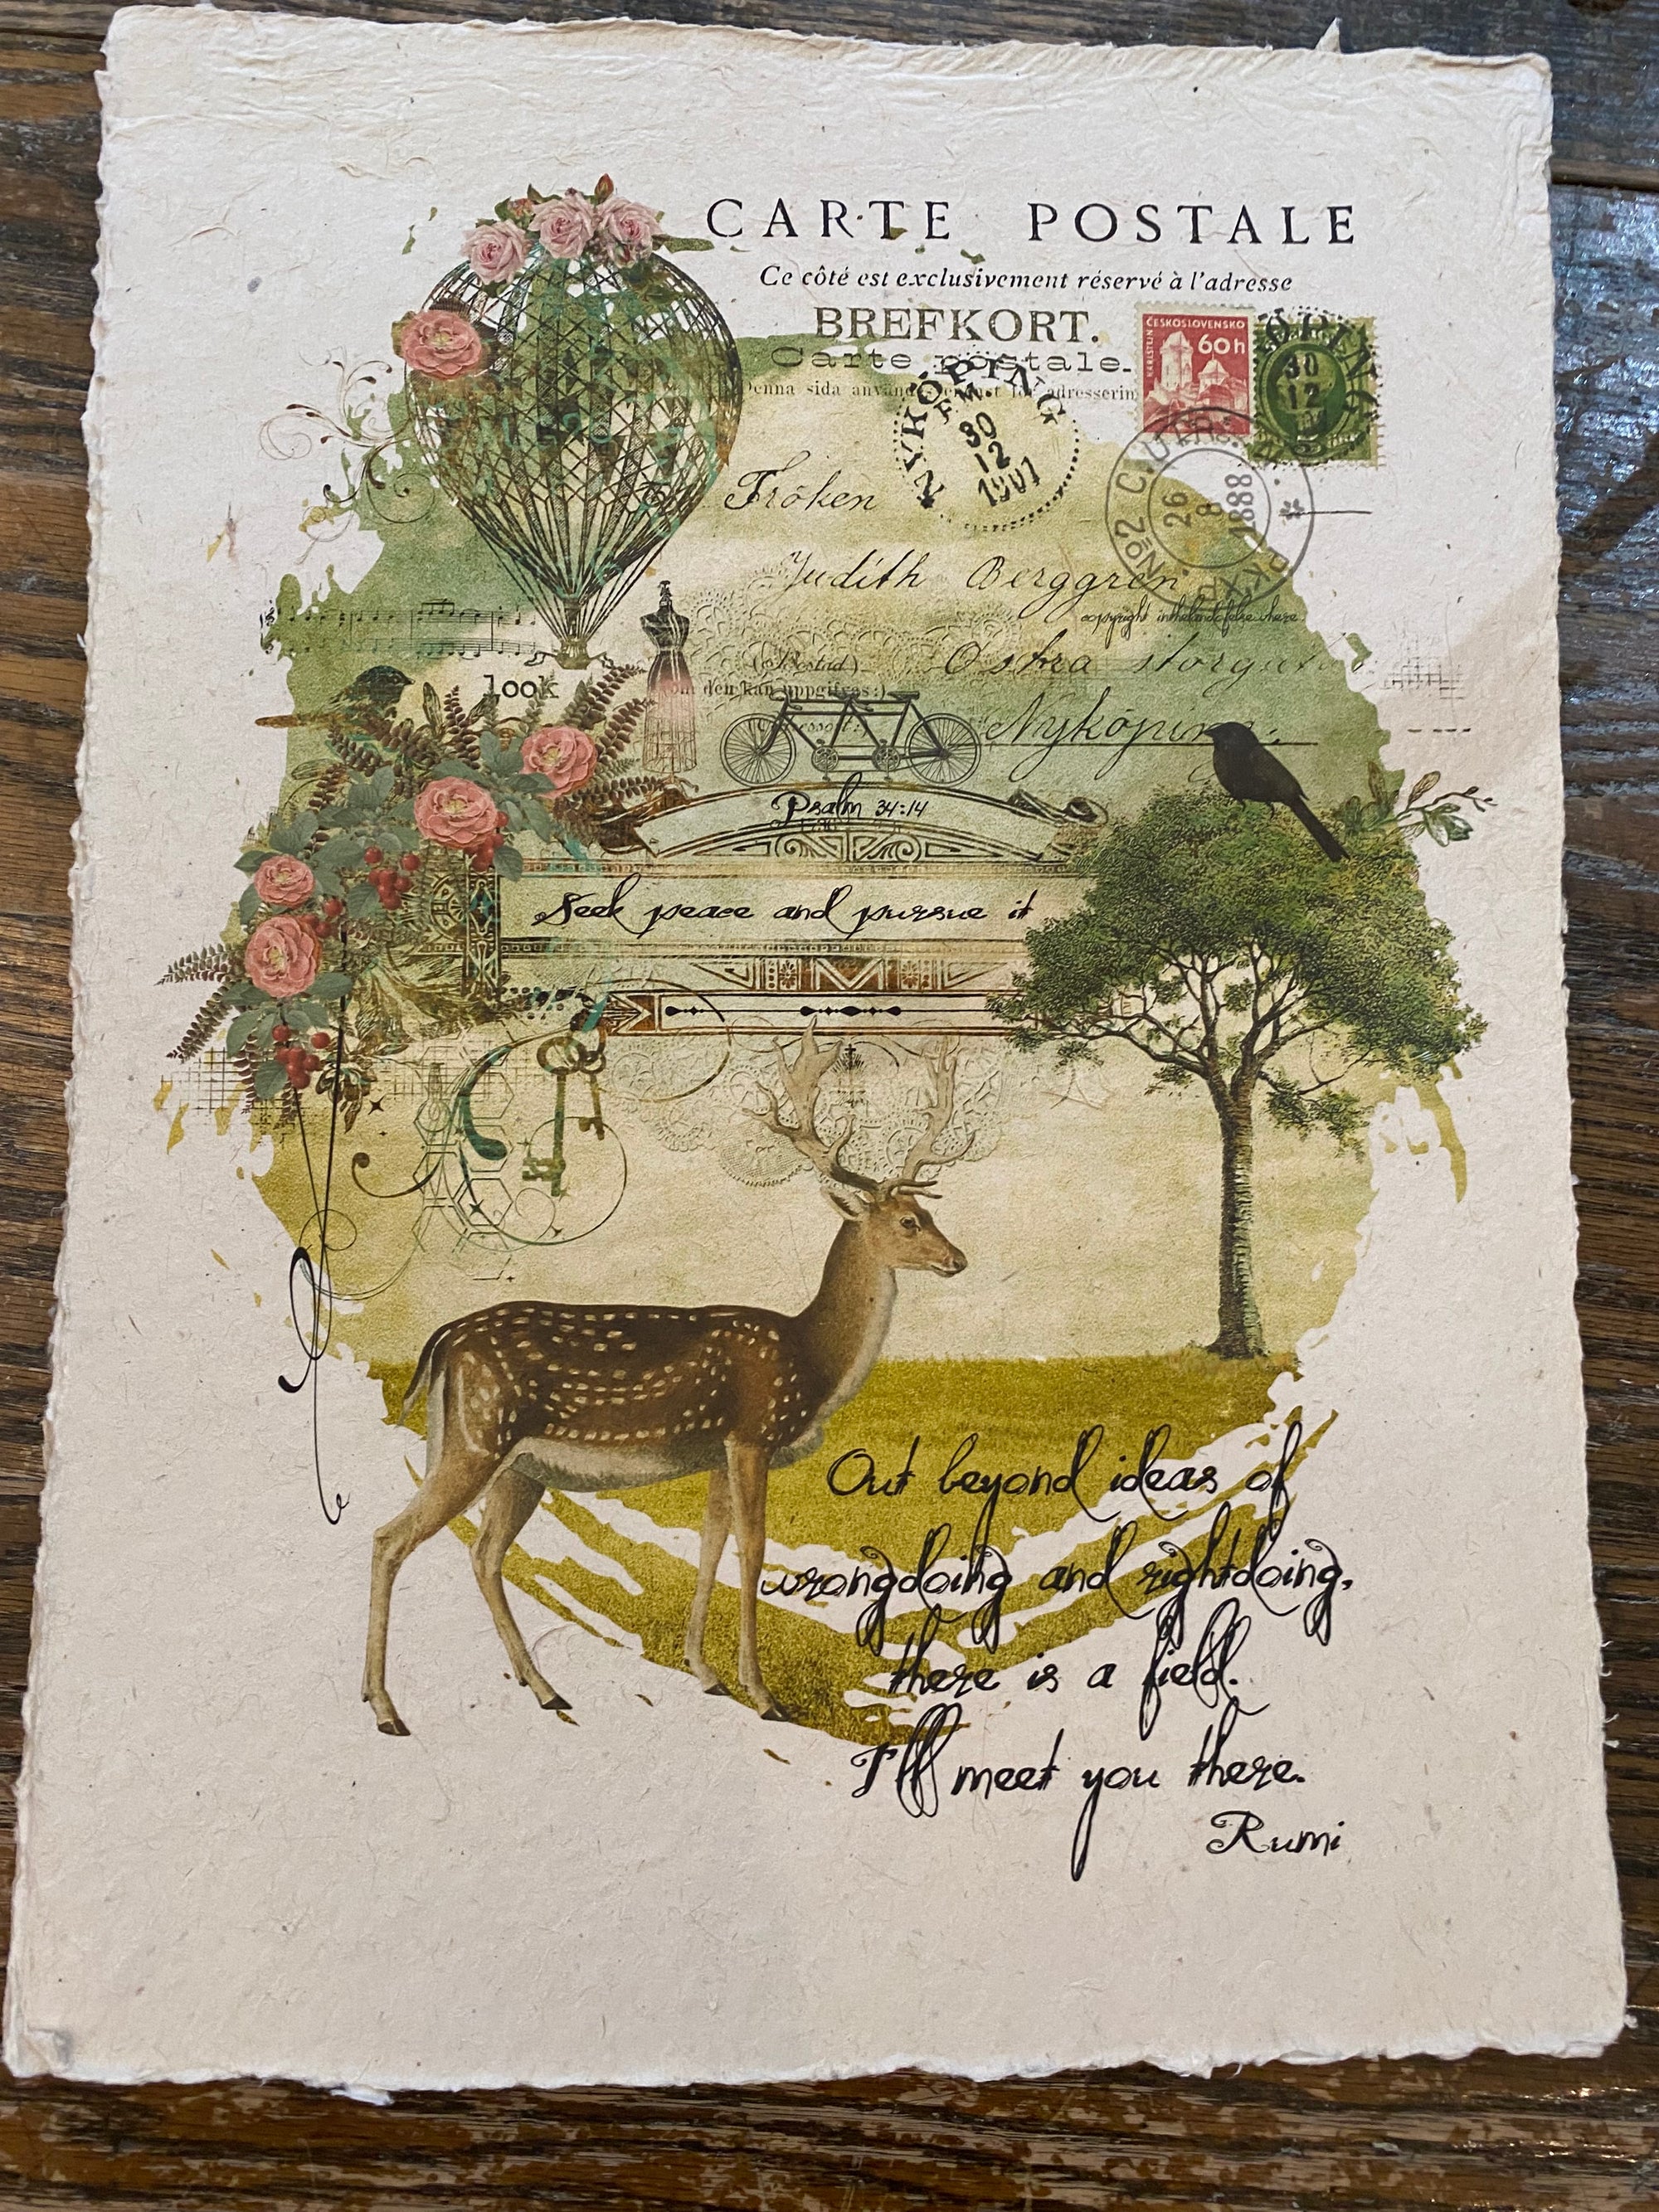 CARTE POSTALE
Ce côté est exclusivement réservé à l'adresse
BREFKORT.
Carte postale.
ČESKOSLOVENSKO
60h
KARLŠTEJN
Denna sida
adressering
NYKÖPING
30
12
1907
30
12
26
8
1888
Fröken
Judith Berggren
copyright inthelandofelsewhere
(Bostad)
Östra
om den kan uppgifvas:)
look
Nyköping
Psalm 34:14
Seek peace and pursue it
Out beyond ideas of
wrongdoing and rightdoing,
there is a field.
I'll meet you there.
Rumi